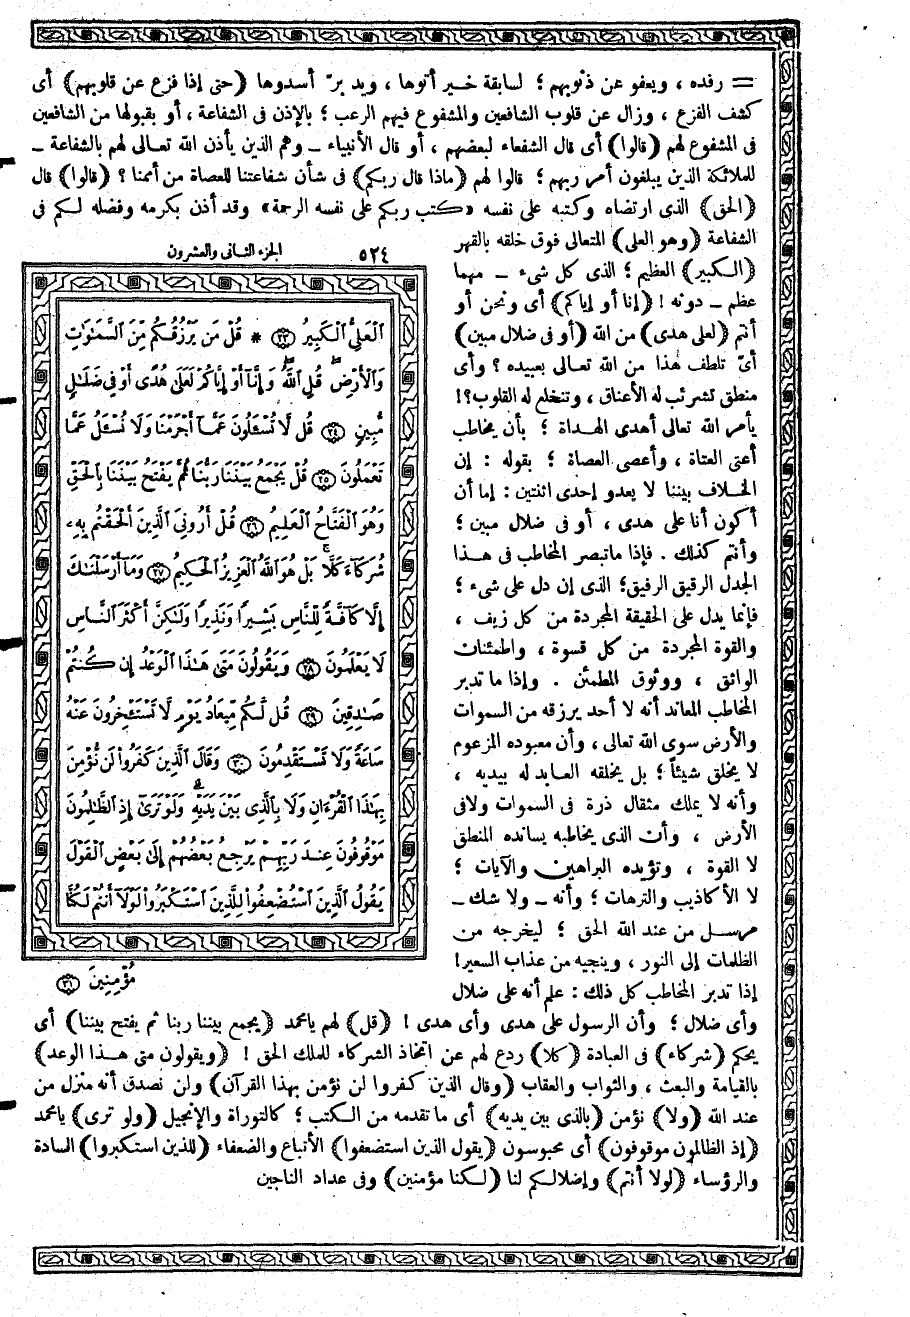 = رفده ، ويعفو عن ذنوبهم ؛ لسابقة خير أتوها ، ويد برّ أسدوها (حتى إذا فزع عن قلوبهم) أى
كشف الفزع ، وزال عن قلوب الشافعين والمشفوع فيهم الرعب ؛ بالإذن فى الشفاعة ، أو بقبولها من الشافعين
فى المشفوع لهم (قالوا) أى قال الشفعاء لبعضهم ، أو قال الأنبياء ـ وهم الذين يأذن الله تعالى لهم بالشفاعة ـ
للملائكة الذين يبلغون أمر ربهم ؛ قالوا لهم (ماذا قال ربكم) فى شأن شفاعتنا للعصاة من أممنا ؟ (قالوا) قال
(الحق) الذى ارتضاه وكتبه على نفسه «كتب ربكم على نفسه الرحمة» وقد أذن بكرمه وفضله لكم فى
الشفاعة (وهو العلى) المتعالى فوق خلقه بالقهر
(الكبير) العظيم ؛ الذى كل شىء ـ مهما
عظم ـ دونه ! (إنا أو إياكم) أى ونحن أو
أنتم (لعلى هدى) من الله (أو فى ضلال مبين)
أىّ تلطف هذا من الله تعالى بعبيده ؟ وأى
منطق تشرئب له الأعناق ، وتنخلع له القلوب؟!
يأمر الله تعالى أهدى الهداة ؛ بأن يخاطب
أعتى العتاة ، وأعصى العصاة ؛ بقوله : إن
الخلاف بيننا لا يعدو إحدى اثنتين : إما أن
أكون أنا على هدى ، أو فى ضلال مبين ؛
وأنتم كذلك . فإذا ما تبصر المخاطب فى هذا
الجدل الرقيق الرفيق؛ الذى إن دل على شىء ؛
فإنما يدل على الحقيقة المجردة من كل زيف ،
والقوة المجردة من كل قسوة ، واطمئنان
الواثق ، ووثوق المطمئن . وإذا ما تدبر
المخاطب المعاند أنه لا أحد يرزقه من السموات
والأرض سوى الله تعالى ، وأن معبوده المزعوم
لا يخلق شيئاً ؛ بل يخلقه العابد له بيديه ،
وأنه لا يملك مثقال ذرة فى السموات ولا فى
الأرض ، وأن الذى يخاطبه يسانده المنطق
لا القوة ، وتؤيده البراهين والآيات ؛
لا الأكاذيب والترهات ؛ وأنه ـ ولا شك ـ
مرسل من عند الله الحق ؛ ليخرجه من
الظلمات إلى النور ، وينجيه من عذاب السعير!
إذا تدبر المخاطب كل ذلك : علم أنه على ضلال
٥٢٤ الجزء الثانى والعشرون
ٱلْعَلِىُّ ٱلْكَبِيرُ ﴿٢٣﴾ * قُلْ مَن يَرْزُقُكُم مِّنَ ٱلسَّمَٰوَٰتِ
وَٱلْأَرْضِ قُلِ ٱللَّهُ وَإِنَّآ أَوْ إِيَّاكُمْ لَعَلَىٰ هُدًى أَوْ فِى ضَلَٰلٍ
مُّبِينٍ ﴿٢٤﴾ قُل لَّا تُسْـَٔلُونَ عَمَّآ أَجْرَمْنَا وَلَا نُسْـَٔلُ عَمَّا
تَعْمَلُونَ ﴿٢٥﴾ قُلْ يَجْمَعُ بَيْنَنَا رَبُّنَا ثُمَّ يَفْتَحُ بَيْنَنَا بِٱلْحَقِّ
وَهُوَ ٱلْفَتَّاحُ ٱلْعَلِيمُ ﴿٢٦﴾ قُلْ أَرُونِىَ ٱلَّذِينَ أَلْحَقْتُم بِهِۦ
شُرَكَآءَ كَلَّا بَلْ هُوَ ٱللَّهُ ٱلْعَزِيزُ ٱلْحَكِيمُ ﴿٢٧﴾ وَمَآ أَرْسَلْنَٰكَ
إِلَّا كَآفَّةً لِّلنَّاسِ بَشِيرًا وَنَذِيرًا وَلَٰكِنَّ أَكْثَرَ ٱلنَّاسِ
لَا يَعْلَمُونَ ﴿٢٨﴾ وَيَقُولُونَ مَتَىٰ هَٰذَا ٱلْوَعْدُ إِن كُنتُمْ
صَٰدِقِينَ ﴿٢٩﴾ قُل لَّكُم مِّيعَادُ يَوْمٍ لَّا تَسْتَـْٔخِرُونَ عَنْهُ
سَاعَةً وَلَا تَسْتَقْدِمُونَ ﴿٣٠﴾ وَقَالَ ٱلَّذِينَ كَفَرُوا۟ لَن نُّؤْمِنَ
بِهَٰذَا ٱلْقُرْءَانِ وَلَا بِٱلَّذِى بَيْنَ يَدَيْهِ وَلَوْ تَرَىٰٓ إِذِ ٱلظَّٰلِمُونَ
مَوْقُوفُونَ عِندَ رَبِّهِمْ يَرْجِعُ بَعْضُهُمْ إِلَىٰ بَعْضٍ ٱلْقَوْلَ
يَقُولُ ٱلَّذِينَ ٱسْتُضْعِفُوا۟ لِلَّذِينَ ٱسْتَكْبَرُوا۟ لَوْلَآ أَنتُمْ لَكُنَّا
مُؤْمِنِينَ ﴿٣١﴾
وأى ضلال ؛ وأن الرسول على هدى وأى هدى ! (قل) لهم يا محمد (يجمع بيننا ربنا ثم يفتح بيننا) أى
يحكم (شركاء) فى العبادة (كلا) ردع لهم عن اتخاذ الشركاء للملك الحق ! (ويقولون متى هذا الوعد)
بالقيامة والبعث ، والثواب والعقاب (وقال الذين كفروا لن نؤمن بهذا القرآن) ولن نصدق أنه منزل من
عند الله (ولا) نؤمن (بالذى بين يديه) أى ما تقدمه من الكتب ؛ كالتوراة والإنجيل (ولو ترى) يا محمد
(إذ الظالمون موقوفون) أى محبوسون (يقول الذين استضعفوا) الأتباع والضعفاء (للذين استكبروا) السادة
والرؤساء (لولا أنتم) وإضلالكم لنا (لكنا مؤمنين) وفى عداد الناجين